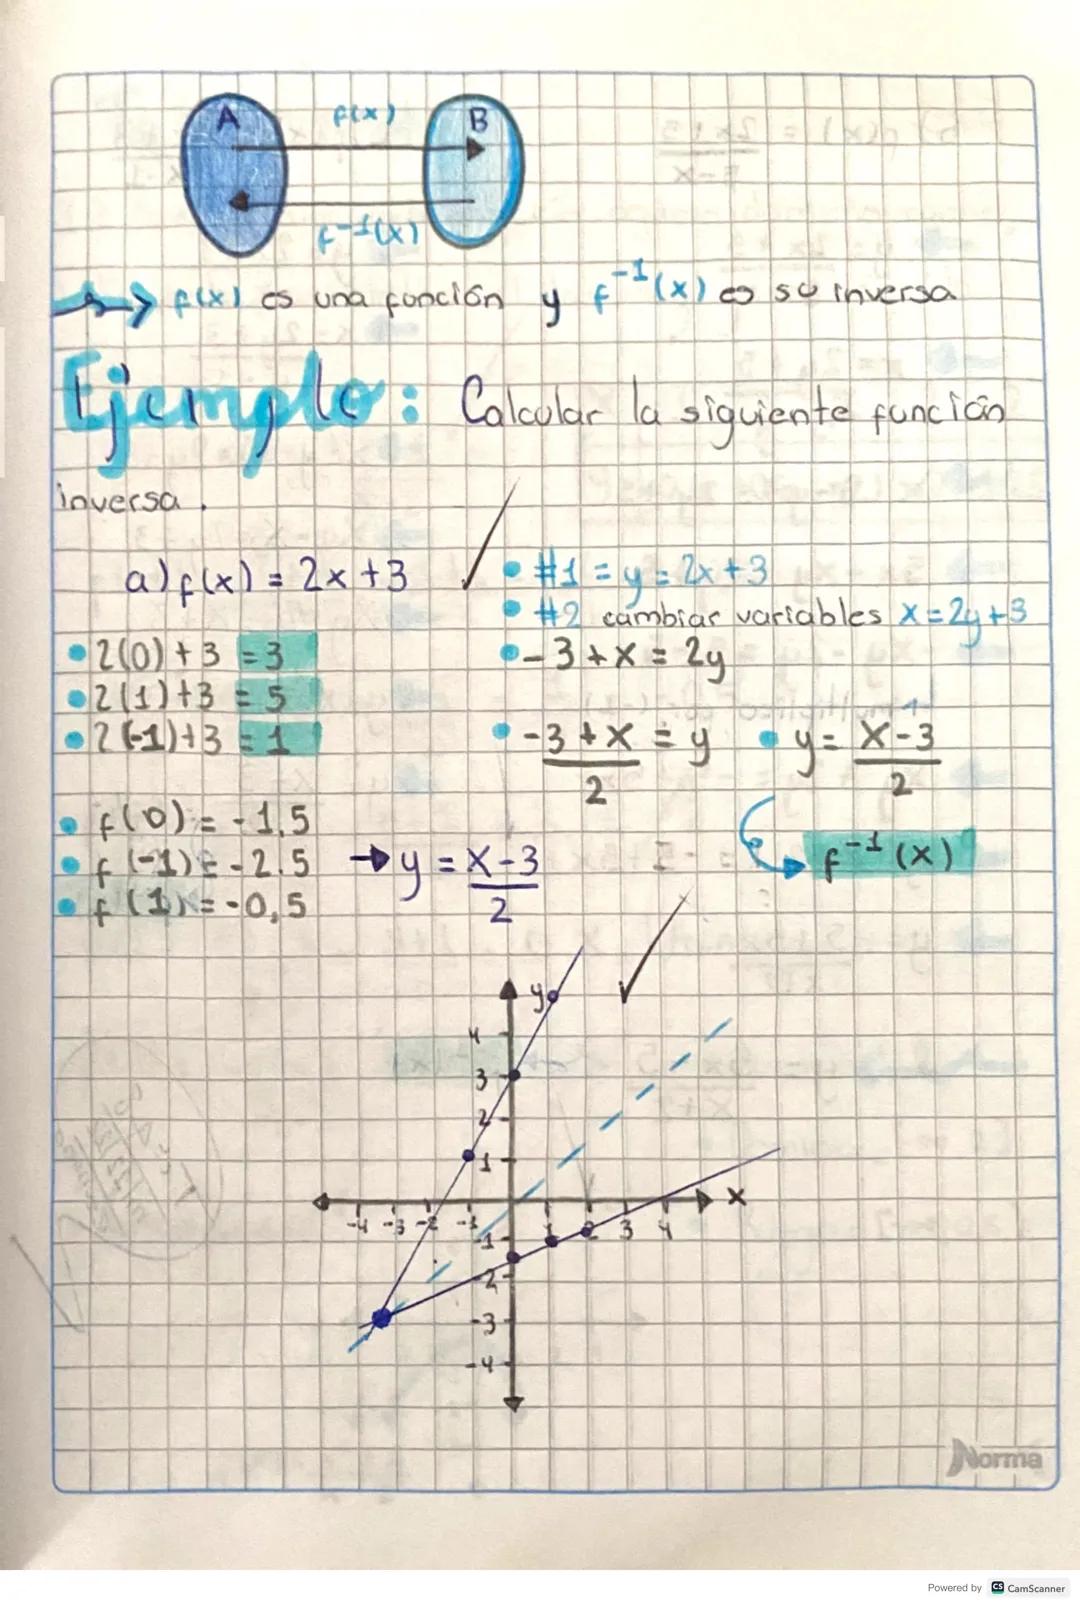 A f(x) B
f⁻¹(x)
f(x) es una función y f⁻¹(x) es su inversa
Ejemplo: Calcular la siguiente función
inversa.
a) f(x) = 2x + 3
2(0) + 3 = 3
2(1) + 3 = 5
2(-1) + 3 = 1
#1 = y = 2x + 3
#2 cambiar variables x = 2y + 3
- 3 + x = 2y
-3 + x / 2 = y
y = x - 3 / 2
f⁻¹(x)
f(0) = -1,5
f(-1) = -2.5
f(1) = -0,5
→ y = x - 3 / 2
y
4
3
2
1
-4 -3 -2 -1 1 2 3 4 x
-1
-2
-3
-4
Norma
Powered by CS CamScanner